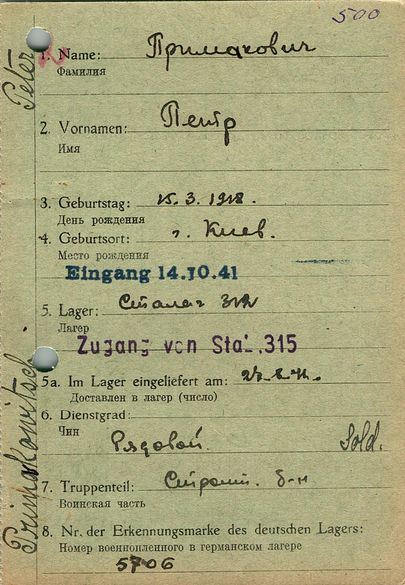 500
1. Name: Примакович
Фамилия
Peter
2. Vornamen: Петр
Имя
3. Geburtstag: 15. 3. 1918.
День рождения
4. Geburtsort: г. Киев.
Место рождения
Eingang 14.10.41
5. Lager: Сталаг
Лагер
Zugang von Stal.315
5a. Im Lager eingeliefert am:
Доставлен в лагер (число)
6. Dienstgrad:
Чин
Рядовой. Sold.
Primakowitsch
7. Truppenteil: Строит. б-н
Воинская часть
8. Nr. der Erkennungsmarke des deutschen Lagers:
Номер военнопленного в германском лагере
5706